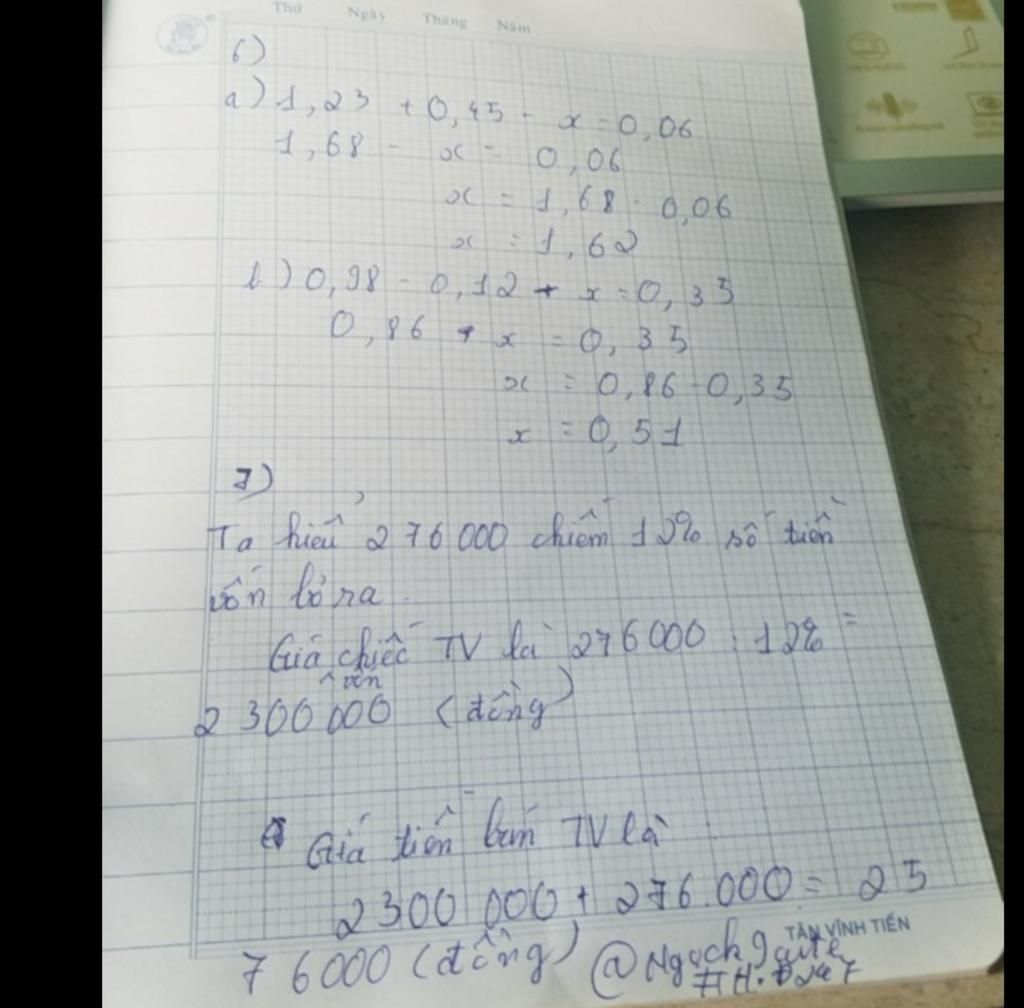 Thứ Ngày Tháng Năm
6)
a) 1,23 + 0,45 - x = 0,06
1,68 - x = 0,06
x = 1,68 - 0,06
x = 1,62
b) 0,98 - 0,12 + x = 0,35
0,86 + x = 0,35
x = 0,86 - 0,35
x = 0,51
7)
Ta hiểu 276000 chiếm 12% số tiền
vốn bỏ ra.
Giá chiếc TV là 276000 : 12% =
vốn
2 300 000 (đồng)
Giá tiền bán TV là
2300 000 + 276.000 = 25
76000 (đồng)
TÂN VĨNH TIẾN